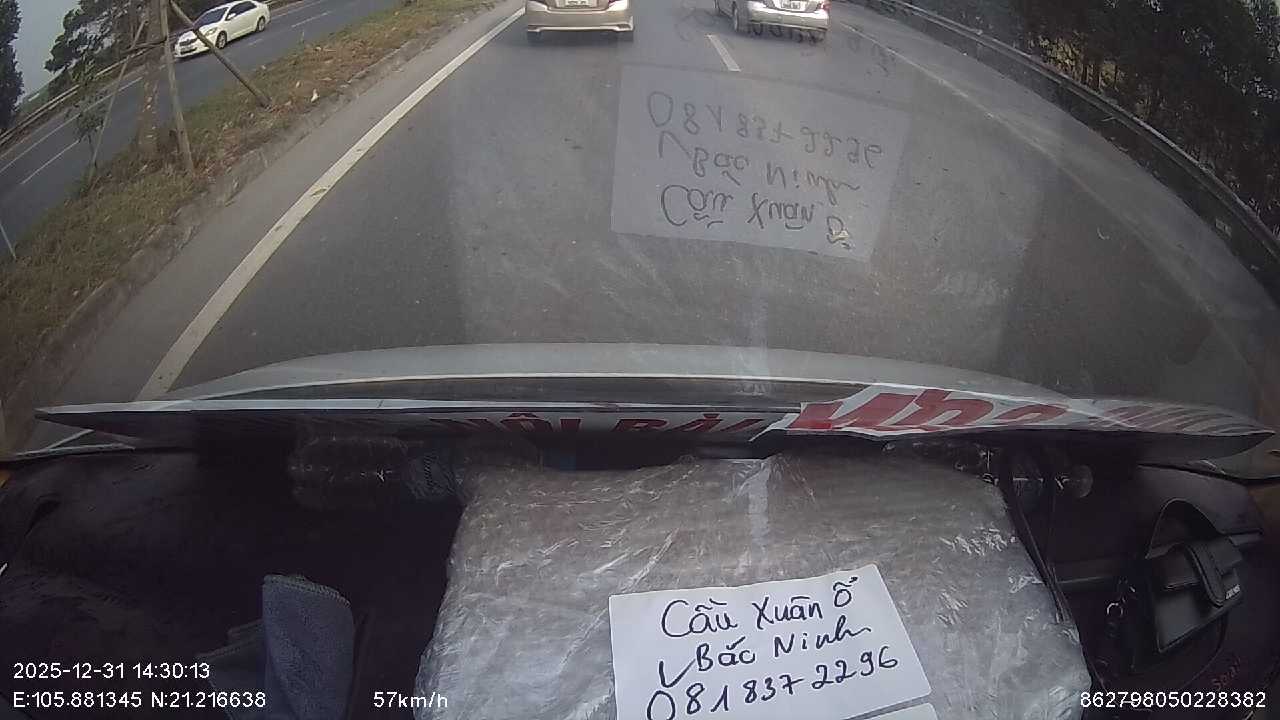 NỘI BÀI
Cầu Xuân Ổ
Bắc Ninh
081 837 2296
2025-12-31 14:30:13
E:105.881345 N:21.216638
57km/h
862798050228382